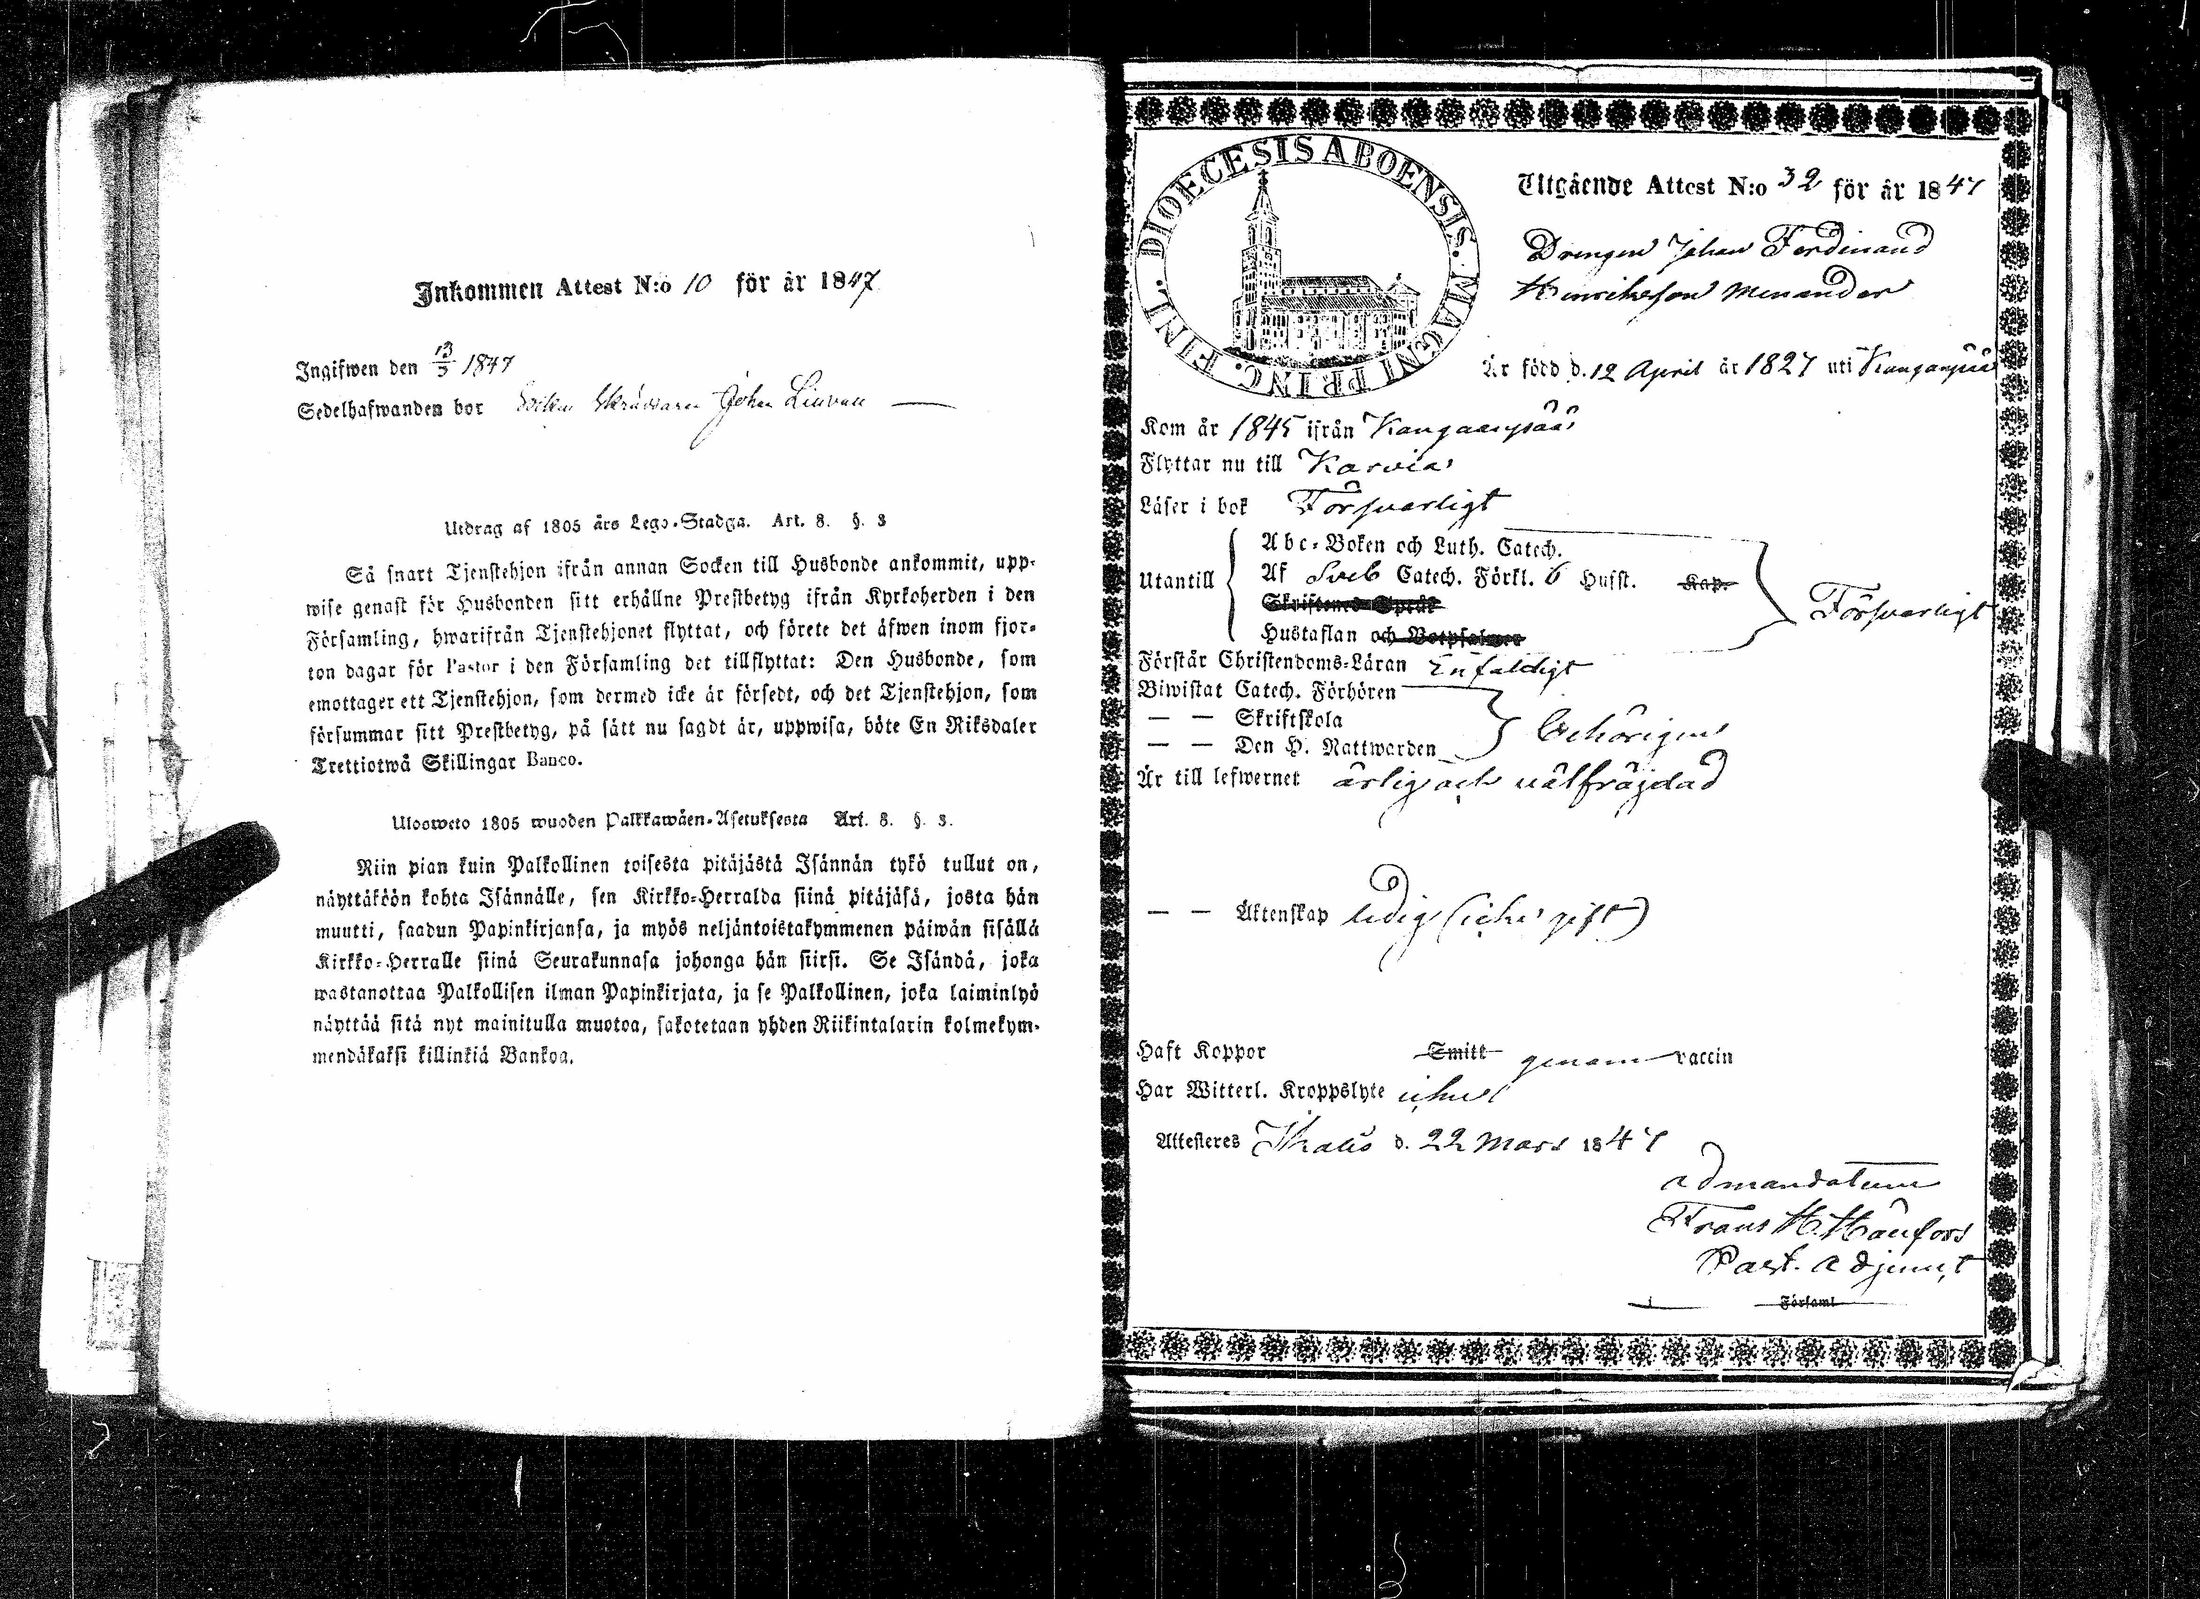 Inkommen Attest N:o 10 för år 1847
Ingifwen den 13/5 1847
Sedelhafwanden bor Johan
Utdrag af 1805 års Lego-Stadga. Art. 8. §. 3
Så snart Tjenstehjon ifrån annan Socken till Husbonde ankommit, upp-
wise genast för Husbonden sitt erhållne Prestbetyg ifrån Kyrkoherden i den
Församling, hwarifrån Tjenstehjonet flyttat, och förete det äfwen inom fjor-
ton dagar för Pastor i den Församling det tillflyttat: Den Husbonde, som
emottager ett Tjenstehjon, som dermed icke är försedt, och det Tjenstehjon, som
försummar sitt Prestbetyg, på sätt nu sagdt är, uppwisa, böte En Riksdaler
Trettiotwå Skillingar Banco.
Ulosweto 1805 wuoden Palkkawäen-Asetuksesta Art. 8. §. 3.
Niin pian kuin Palkollinen toisesta pitäjästä Isännän tykö tullut on,
näyttäköön kohta Isännälle, sen Kirkko-Herralda siinä pitäjäsä, josta hän
muutti, saadun Papinkirjansa, ja myös neljäntoistakymmenen päiwän sisällä
Kirkko-Herralle siinä Seurakunnasa johonga hän siirsi. Se Isändä, joka
wastanottaa Palkollisen ilman Papinkirjata, ja se Palkollinen, joka laiminlyö
näyttää sitä nyt mainitulla muotoa, sakotetaan yhden Riikintalarin kolmekym-
mendäkaksi killinkiä Bankoa.
DIOECESIS ABOENSIS. MAGNI PRINC. FINL.
Utgående Attest N:o 32 för år 1847
Drengen Johan Ferdinand
Henriksson Menander
Är född d. 12 April år 1827 uti Kanganpää
Kom år 1845 ifrån Kangaanpää
Flyttar nu till Karvia
Läser i bok Försvarligt
Utantill
Abc-Boken och Luth. Catech.
Af Sveb Catech. Förkl. 6 Hufst. Kap.
Skriftenes Språk
Hustaflan och Botpsalmer
Försvarligt
Förstår Christendoms-Läran Enfaldigt
Biwistat Catech. Förhören
— — Skriftskola
— — Den H. Nattwarden
behörigen
Är till lefwernet ärlig och välfräjdad
— — Äktenskap ledig (icke gift)
Haft Koppor Smitt genom vaccin
Har Witterl. Kroppslyte icke
Attesteres Ikalis d. 22 Mars 1847
ad mandatum
Frans H. Hänfors
Past. Adjunct
Församl